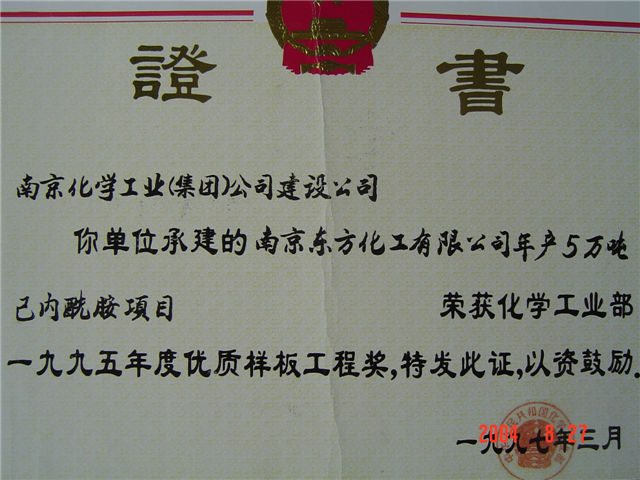 證書
南京化学工业(集团)公司建设公司
你单位承建的南京东方化工有限公司年产5万吨
己内酰胺项目 荣获化学工业部
一九九五年度优质样板工程奖,特发此证,以资鼓励.
一九九七年三月
2004 8 27